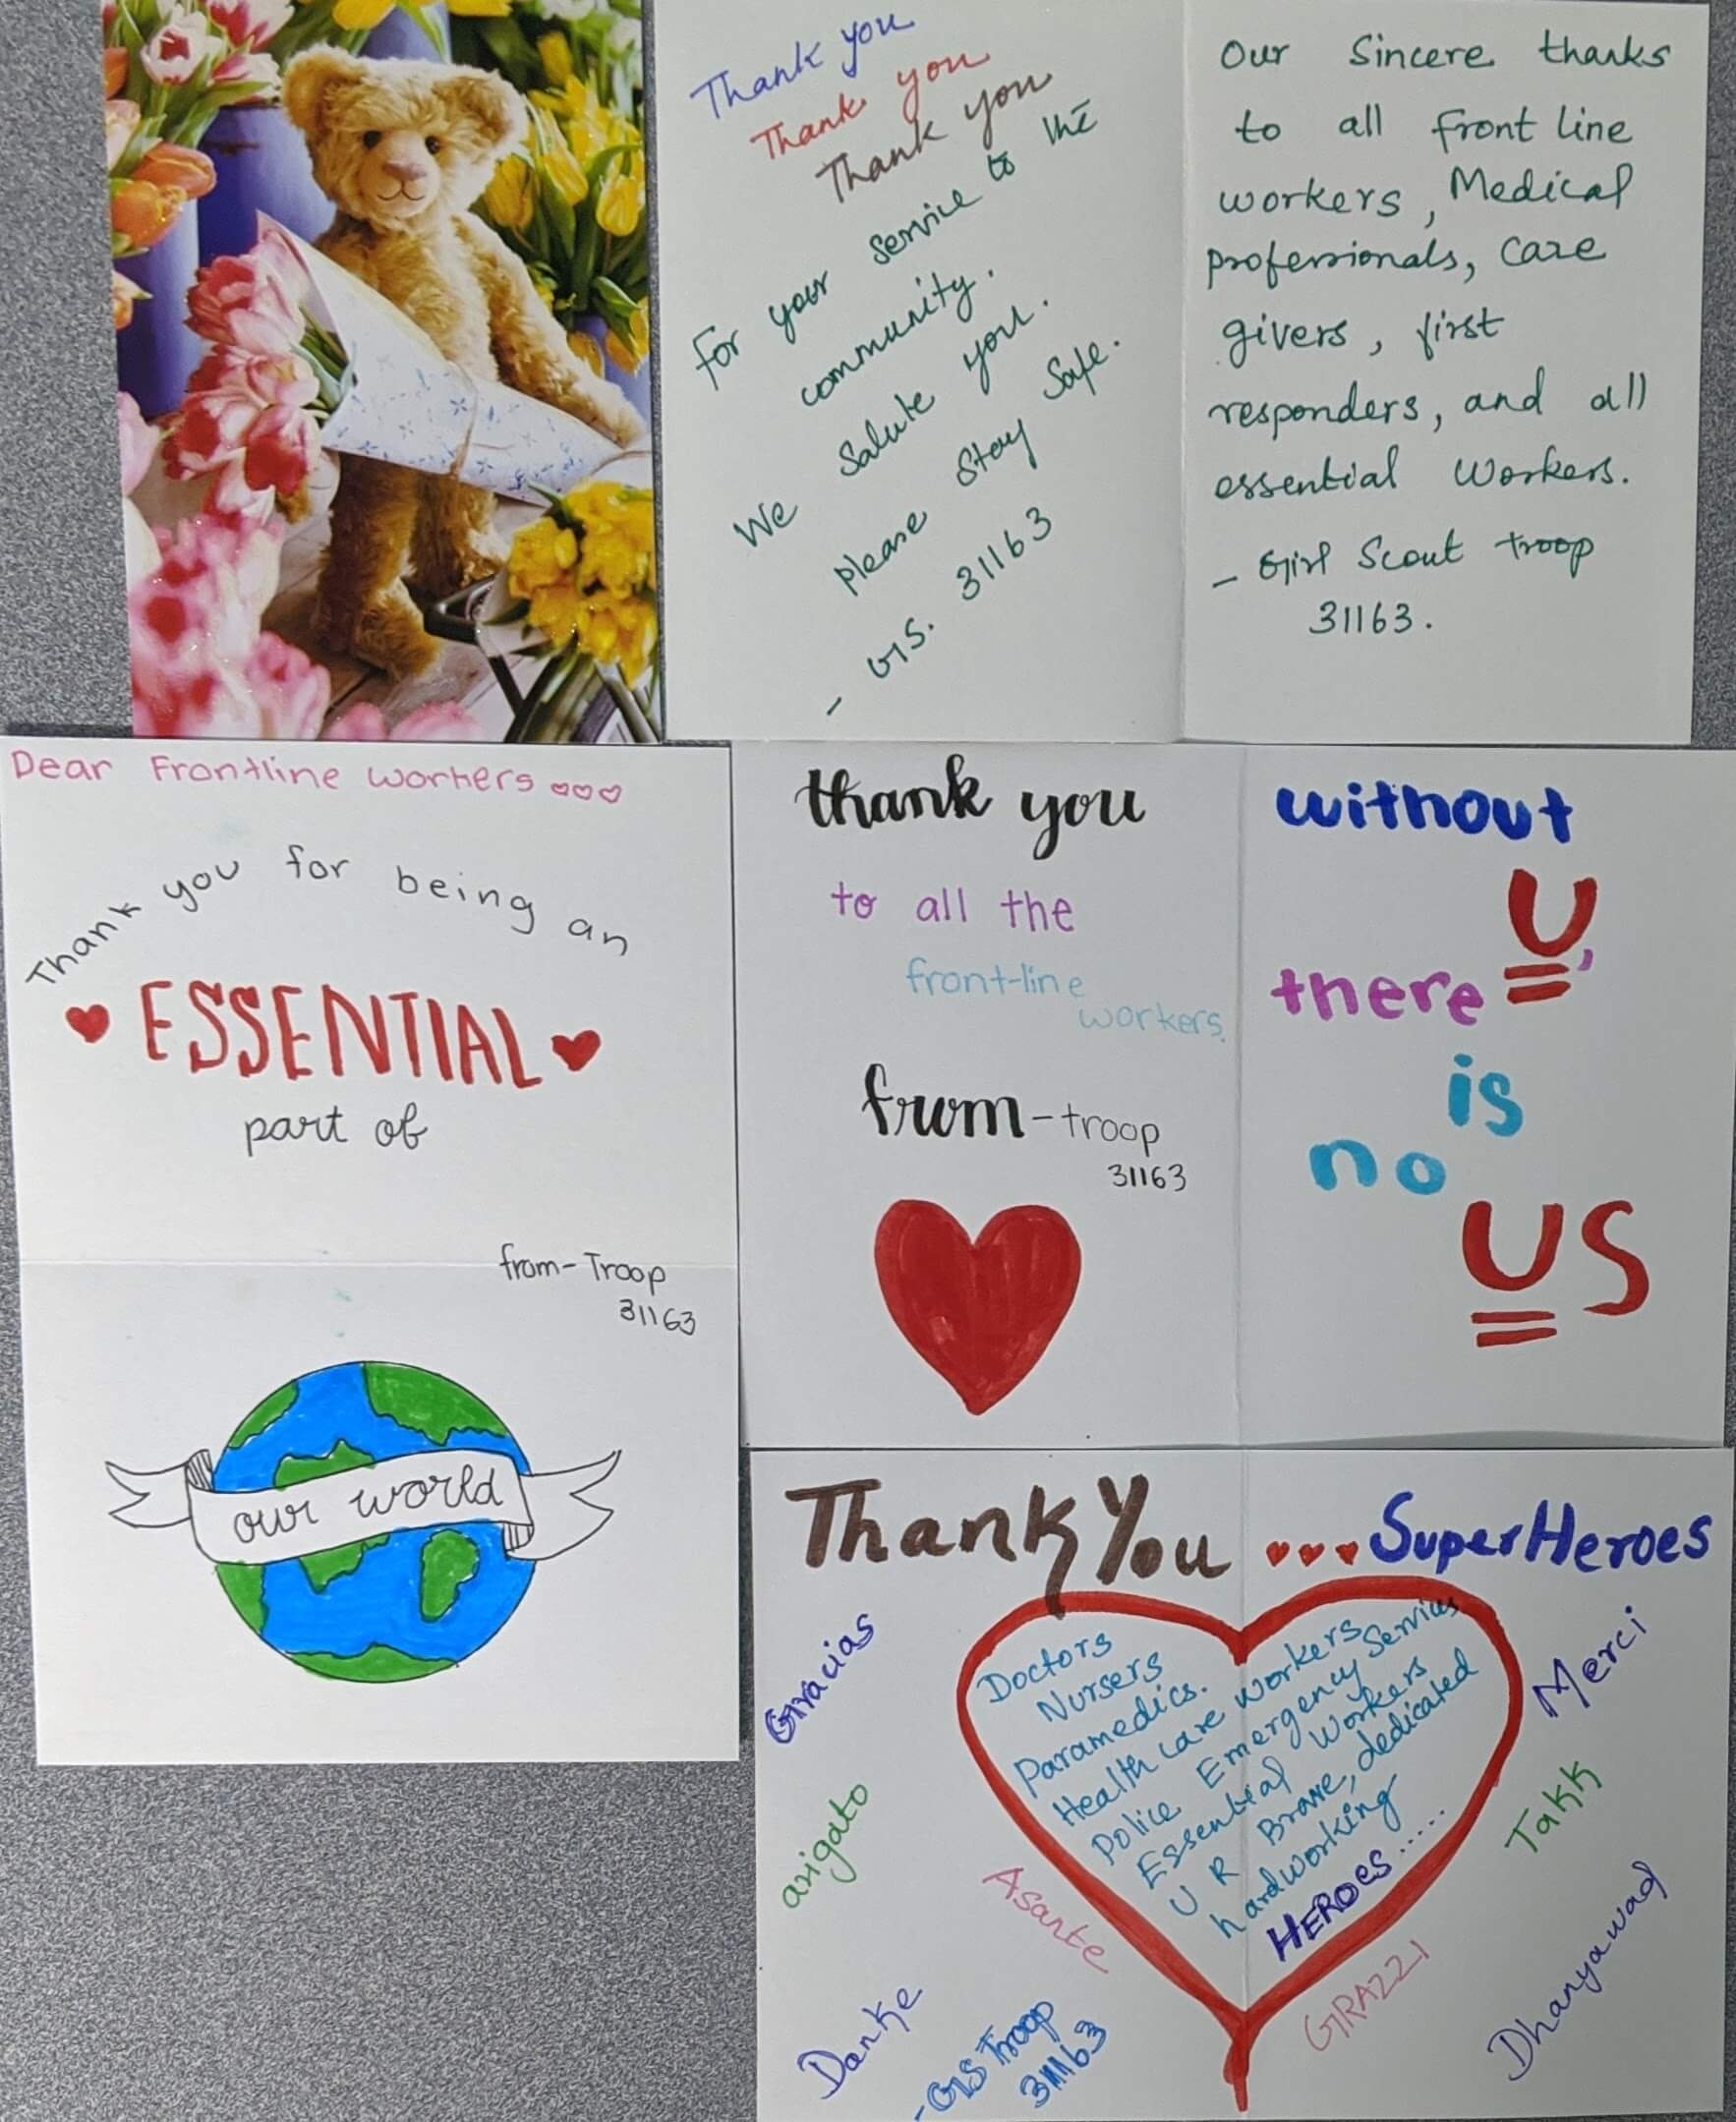 Thank you
Thank you
Thank you
For your service to the
community.
We Salute you.
Please Stay Safe.
- G.S. 31163
Our Sincere thanks
to all front line
workers, Medical
professionals, care
givers, first
responders, and all
essential workers.
- Girl Scout troop
31163.
Dear Frontline workers
Thank you for being an
ESSENTIAL
part of
from - Troop
31163
our world
thank you
to all the
front-line
workers.
from - troop
31163
without
U,
there
is
no
US
Thank You ... SuperHeroes
Doctors
Nursers
Paramedics.
Health care workers
Police Emergency Services
Essential Workers
U R Brave, dedicated
hardworking
HEROES .....
Gracias
arigato
Asante
Danke
- GS Troop
31163
Merci
Takk
Dhanyawad
GRAZZI